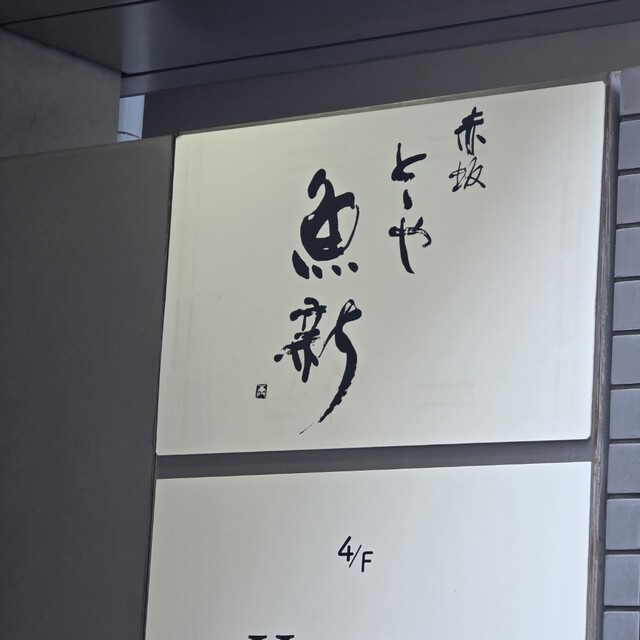 赤坂
とゝや
魚新
4/F